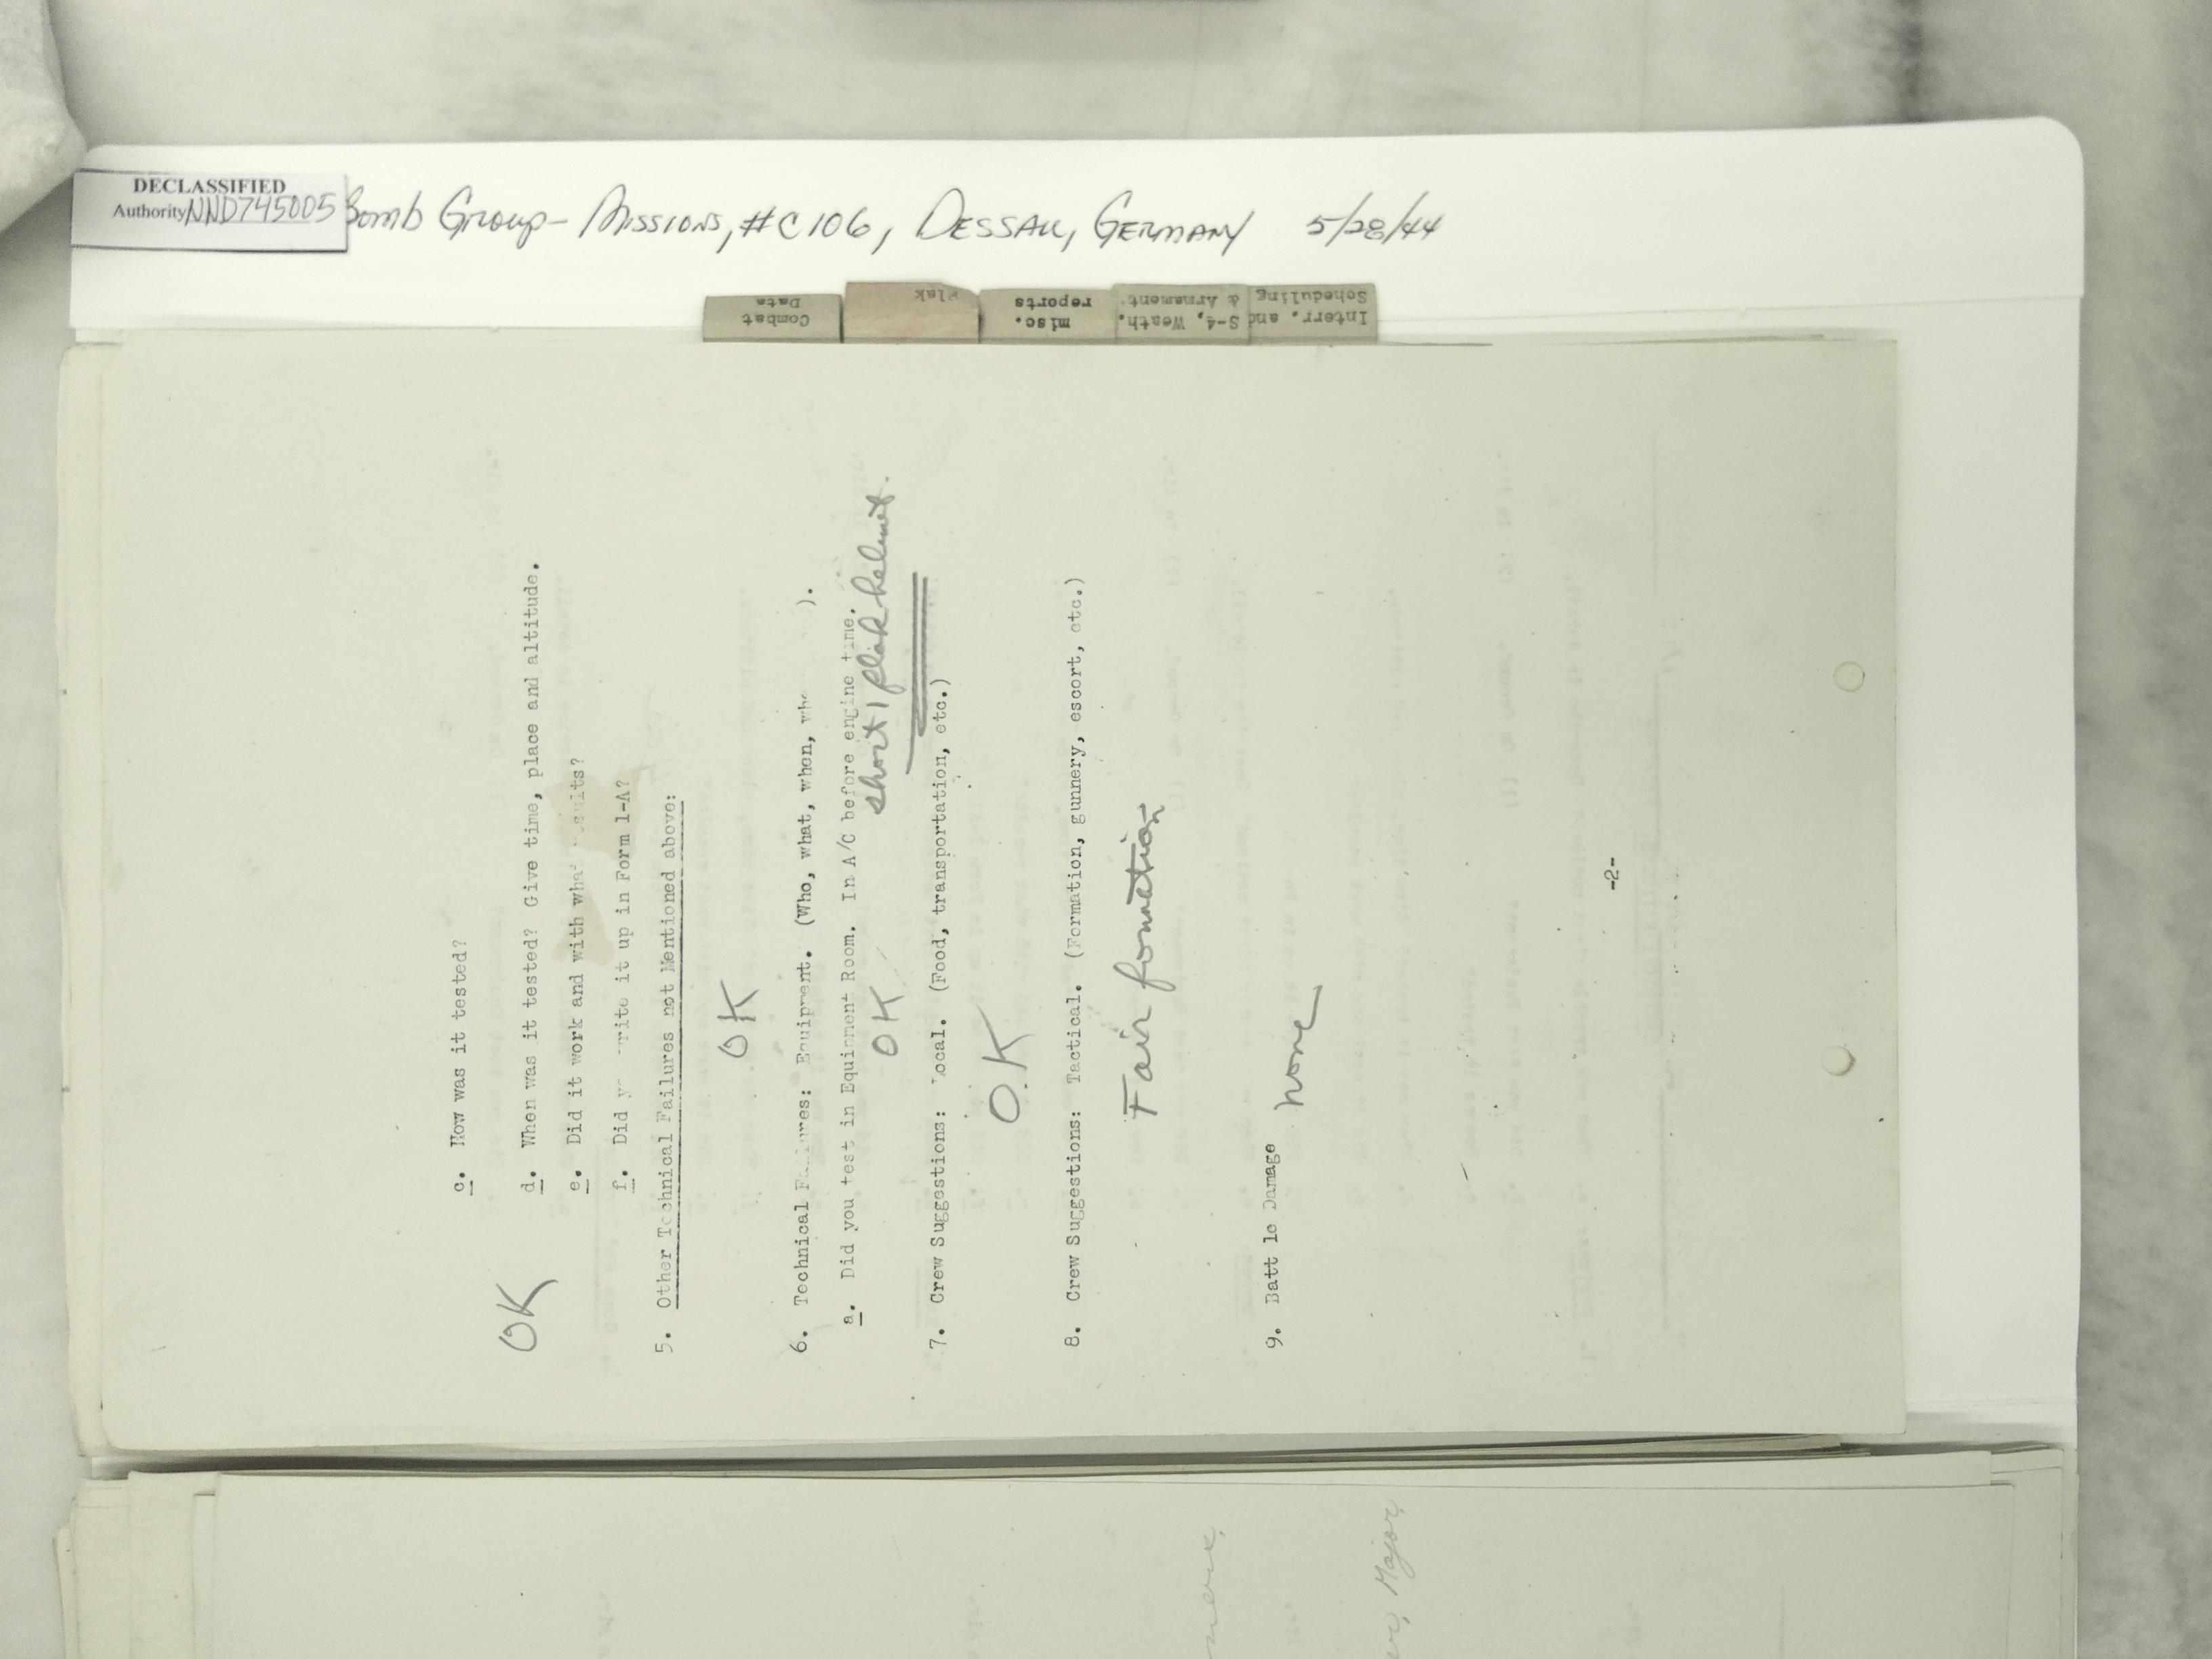 DECLASSIFIED
Authority NND745005
Bomb Group - Missions, #C106, Dessau, Germany 5/28/44
Combat Data
Flak
misc. reports
S-4, Weath. & Armament
Interr. and Scheduling
c. How was it tested?
d. When was it tested? Give time, place and altitude.
OK
e. Did it work and with what results?
f. Did write it up in Form 1-A?
5. Other Technical Failures not Mentioned above:
OK
6. Technical Failures: Equipment. (Who, what, when, ).
a. Did you test in Equipment Room. In A/C before engine time.
OK short 1 flak helmet.
7. Crew Suggestions: Local. (Food, transportation, etc.)
O.K
8. Crew Suggestions: Tactical. (Formation, gunnery, escort, etc.)
Fair formation
9. Batt le Damage
none
-2-
Major,